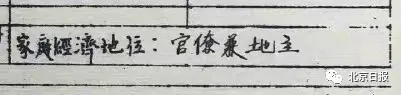 家庭經濟地位：官僚兼地主
北京日报